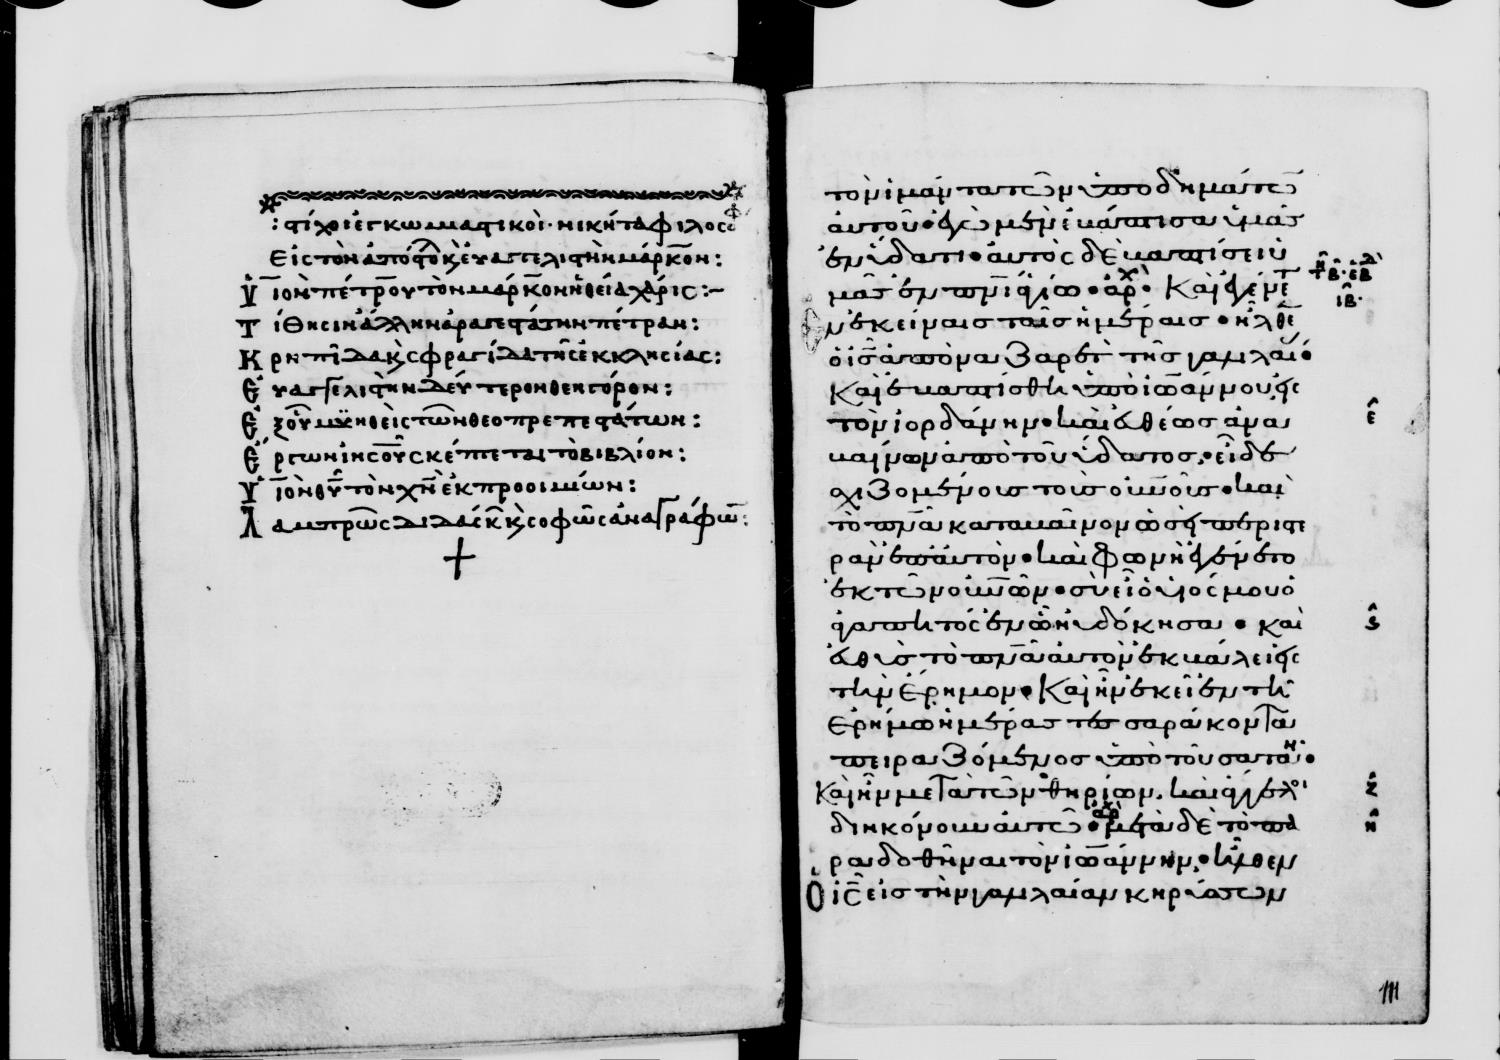 : στίχοι ἐγκωμιαστικοὶ · νικήτα φιλοσόφ
Εἰς τὸν ἀπόστολον κ εὐαγγελιστὴν μάρκον :
Υἱὸν πέτρου τὸν μάρκον ἡ θεία χάρις :~
Τίθησιν ἄλλην ἀραγεστάτην πέτραν :
Κρηπῖδα κ σφραγίδα τῆς ἐκκλησίας :
Εὐαγγελιστὴν δεύτερον θεηγόρον :
Ἐξ οὗ μυηθεὶς τῶν θεοπρεπεστάτων :
Ἔργων ἰησοῦς κέπεται τὸ βιβλίον :
Υἱὸν θῦ τὸν χν ἐκ προοιμίων :
Λαμπρῶς διδάσκει κ σοφῶς ἀναγράφων :
τὸν ἱμάντα τῶν ὑποδημάτων
αὐτοῦ · ἐγὼ μὲν ἐβάπτισα ὑμᾶς
ἐν ὕδατι · αὐτὸς δὲ βαπτίσει ὑ
μᾶς ἐν πνι ἁγίω · ἀρχ · Καὶ ἐγένετ
ἐν ἐκείναις ταῖς ἡμέραις · ἦλθεν
ὁ ις ἀπὸ ναζαρὲτ τῆς γαλιλαί ·
Καὶ ἐβαπτίσθη ὑπὸ ἰωάννου εἰς
τὸν ἰορδάνην · καὶ εὐθέως ἀνα
βαίνων ἀπὸ τοῦ ὕδατος · εἶδε
σχιζομένους τοὺς οὐνοὺς · καὶ
τὸ πνα καταβαῖνον ὡσεὶ περιστε
ρὰν ἐπ' αὐτόν · καὶ φωνὴ ἐγένετο
ἐκ τῶν οὐνῶν · σὺ εἶ ὁ υἱός μου ὁ
ἀγαπητός ἐν ὧ ηὐδόκησα · καὶ
εὐθὺς τὸ πνα αὐτὸν ἐκβάλει εἰς
τὴν ἔρημον · Καὶ ἦν ἐκεῖ ἐν τῆ
ἐρήμω ἡμέρας τεσσαράκοντα
πειραζόμενος ὑπὸ τοῦ σατανᾶ ·
Καὶ ἦν μετὰ τῶν θηρίων · καὶ οἱ ἄγγελοι
διηκόνουν αὐτῶ · μετὰ δὲ τὸ πα
ραδοθῆναι τὸν ἰωάννην · ἦλθεν
Ὁ ις εἰς τὴν γαλιλαίαν κηρύσσων
ε
ς
ζ
η
111